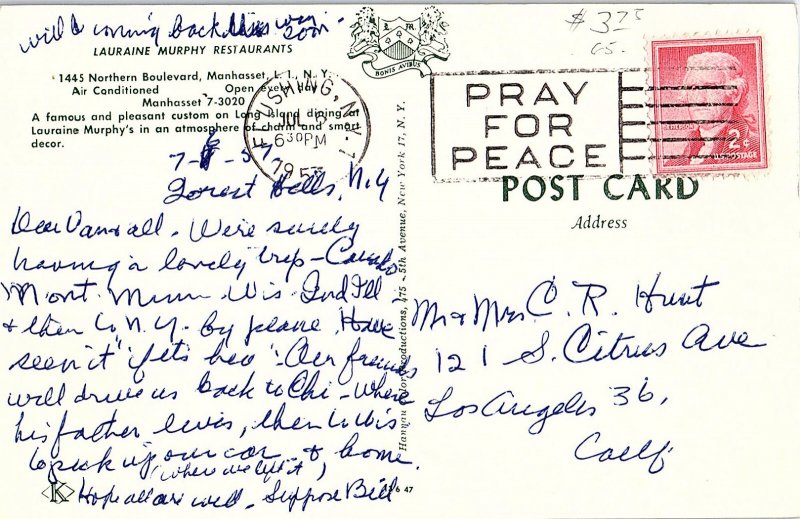 will be coming back this way
soon.
LAURAINE MURPHY RESTAURANTS
1445 Northern Boulevard, Manhasset, L. I., N. Y.
Air Conditioned Open every day
Manhasset 7-3020
A famous and pleasant custom on Long Island dining at
Lauraine Murphy's in an atmosphere of charm and smart
decor.
BONIS AVIBUS
$3.75
FLUSHING, N.Y.
JUL
6 30 PM
195
PRAY
FOR
PEACE
JEFFERSON
2¢
U.S. POSTAGE
POST CARD
Address
7-8-57
Forest Hills, N.Y
Dear Van & all. We're surely
having a lovely trip - Canada
Mont. Minn. Wis. Ind Ill
& then to N.Y. by plane. Have
seen it "if its has". Our friends
will drive us back to Chi - where
his father lives, then to Wis
to pick up our car & home.
(where we left it)
Hope all are well. Suppose Bill
K
6 47
Hannau Color Productions, 475 - 5th Avenue, New York 17, N. Y.
Mr & Mrs C. R. Hunt
121 S. Citrus Ave
Los Angeles 36,
Calif